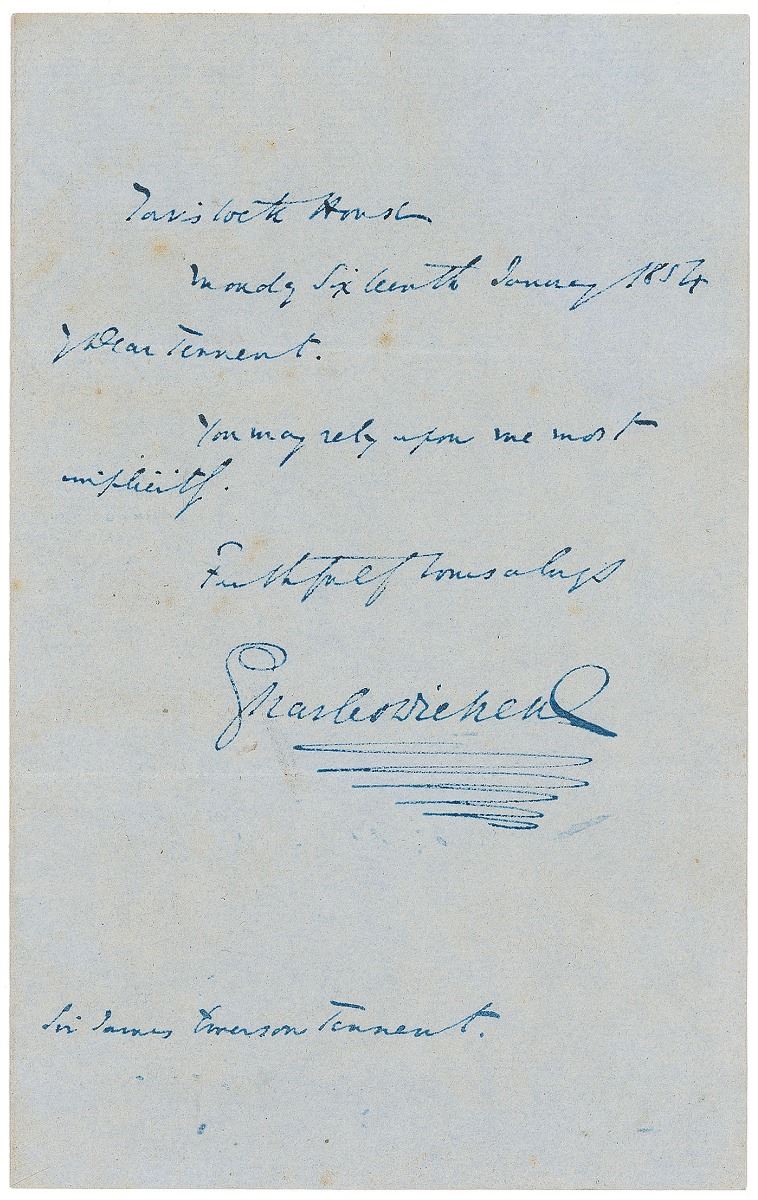 Tavistock House
Monday Sixteenth January 1854
My Dear Tennent.
You may rely upon me most
implicitly.
Faithfully Yours always
Charles Dickens
Sir James Emerson Tennent.